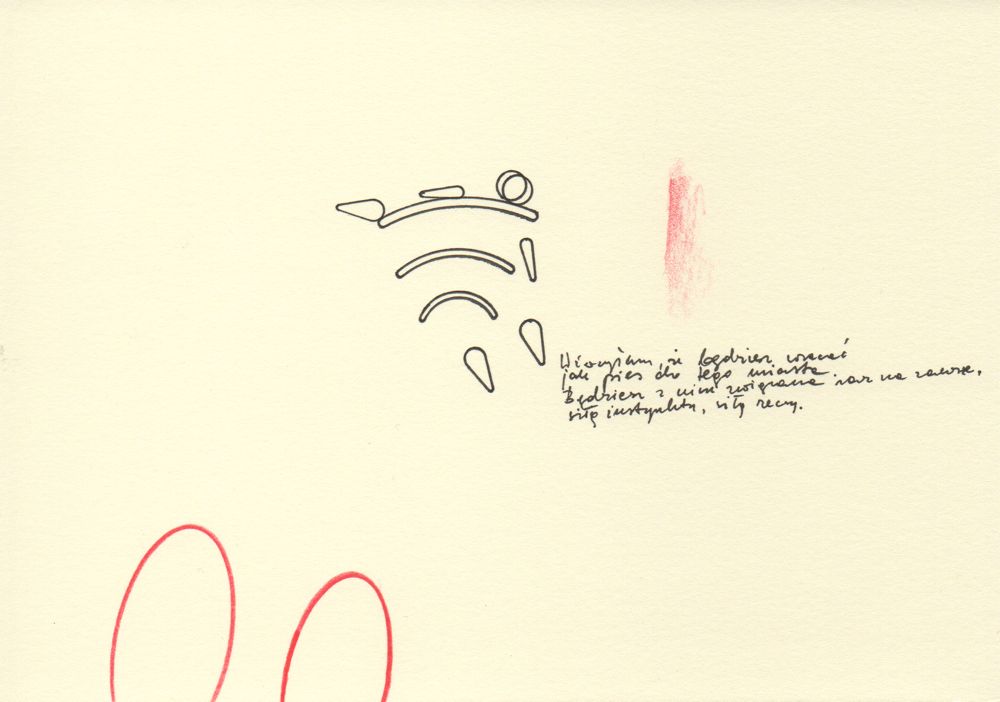 że będziesz wracać
jak pies do tego miasta.
Będziesz z nim związana raz na zawsze,
siłą instynktu, siłą rzeczy.